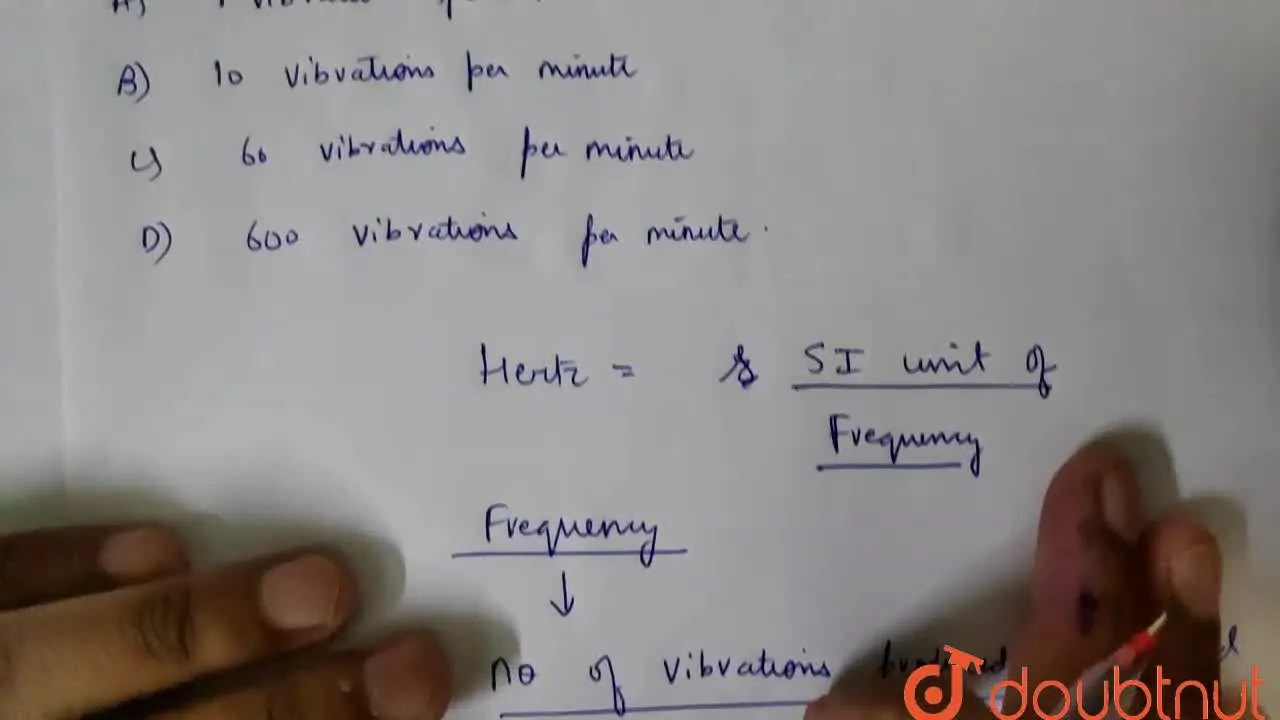 B) 10 vibrations per minute
C) 60 vibrations per minute
D) 600 vibrations per minute.
Hertz = SI unit of
Frequency
Frequency
↓
no of vibrations
doubtnut